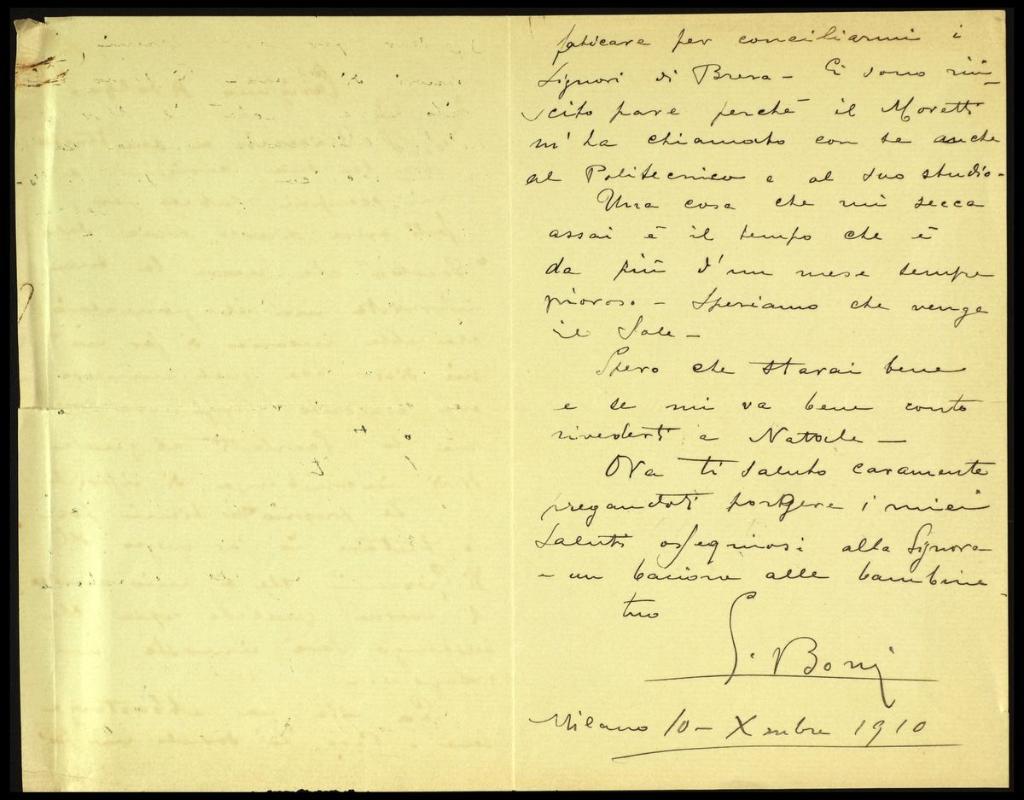 faticare per conciliarmi i
Signori di Brera – Ci sono riu-
scito pare perchè il Moretti
m'ha chiamato con te anche
al Politecnico e al suo studio.
Una cosa che mi secca
assai è il tempo che è
da più d'un mese sempre
piovoso – Speriamo che venga
il Sole –
Spero che starai bene
e se mi va bene conto
rivederti a Natale –
Ora ti saluto caramente
pregandoti porgere i miei
saluti ossequiosi alla Signora
– un bacione alle bambine
tuo
G. Boni
Milano 10 – Xembre 1910